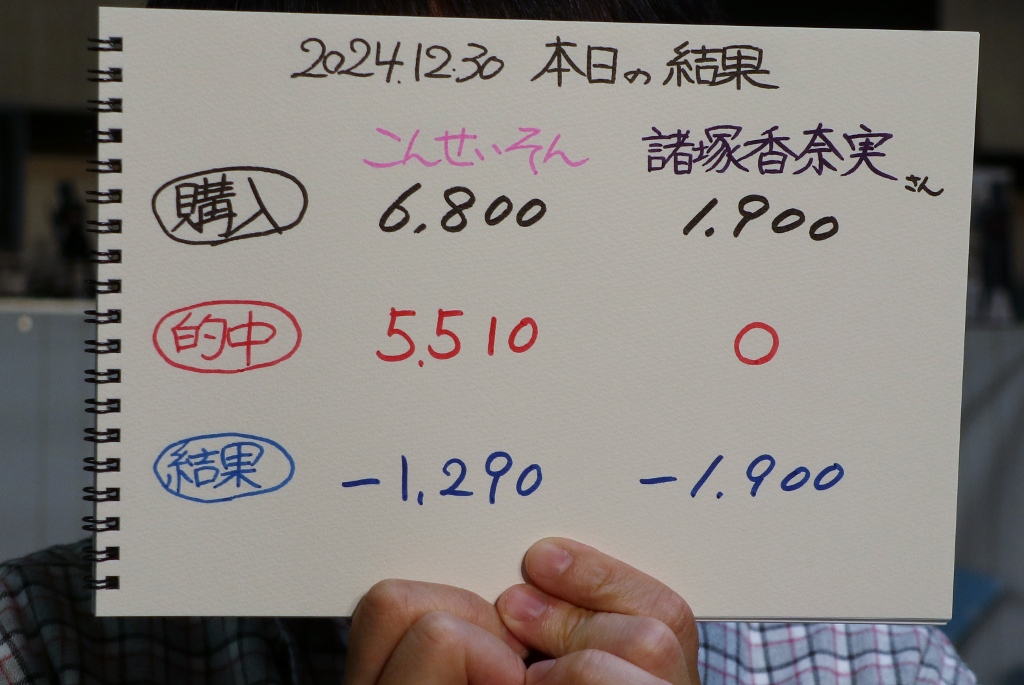 2024.12.30 本日の結果
こんせいそん 諸塚香奈実さん
購入 6,800 1,900
的中 5,510 0
結果 -1,290 -1,900